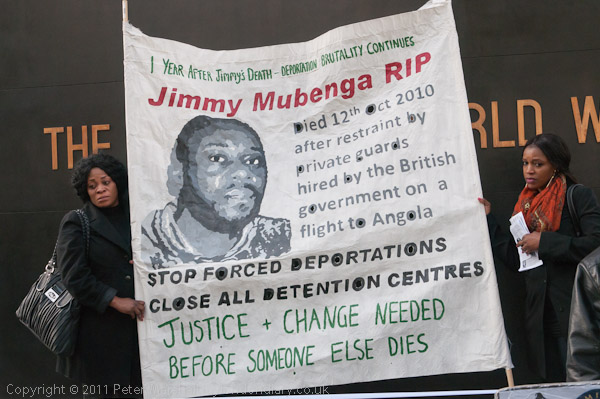 1 YEAR AFTER JIMMY'S DEATH - DEPORTATION BRUTALITY CONTINUES
Jimmy Mubenga RIP
Died 12th Oct 2010
after restraint by
private guards
hired by the British
government on a
flight to Angola
STOP FORCED DEPORTATIONS
CLOSE ALL DETENTION CENTRES
JUSTICE + CHANGE NEEDED
BEFORE SOMEONE ELSE DIES
THE
RLD W
Copyright © 2011 Peter
.co.uk